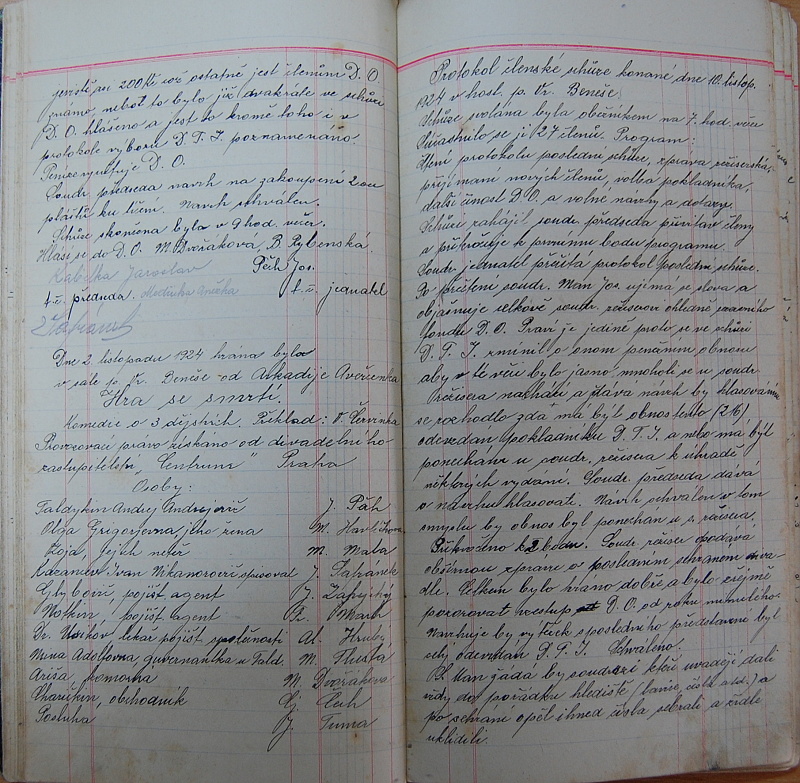 jeniště asi 200 Kč což ostatně jest členům D. O
známo, neboť to bylo již dvakráte ve schůzi
D. O. hlášeno a jest to kromě toho i v
protokole výboru D. T. J. poznamenáno.
D. O.
Soudr. předseda návrh na zakoupení 2ou
plášťů ku líčení. Návrh schválen.
Schůze skončena byla v 9 hod. večer.
Hlásí se do D. O. M. Dvořáková, B. Rybenská.
Kabelka Jaroslav Pěch Jos.
t. č. předseda. Anežka t. č. jednatel
Dne 2. listopadu 1924 hrána byla
v sále p. Fr. Beneše od Arkadije Averčenka
Hra se smrtí.
Komedie o 3 dějstvích. Překlad: V. Červinka
Provozovací právo získáno od divadelního
zastupitelství „Centrum" Praha
Osoby:
Taldykin Andrej Andrejovič J. Pěch
Olga Grigorjevna, jeho žena M. Havlíkova
Zoja, jejich neteř M. Malá
Kazancev Ivan Nikanorovič spisovatel J. Šafránek
Glybovič, pojišť. agent J. Zápský
Notkin, pojišť. agent R. Mareš
Dr. Usikov, lékař pojišť. společnosti Al. Hrubý
Nina Adolfovna, guvernantka u Tald. M. Tlustá
Ariša, komorná M. Dvořákova
Charitkin, obchodník Čech
Posluha J. Tuma
Protokol členské schůze konané dne 10. listop.
1924 v host. p. Fr. Beneše.
Schůze svolána byla oběžníkem na 7. hod. več.
Súčastnilo se jí 27 členů. Program:
Čtení protokolu poslední schůze, zpráva režiserská,
přijímaní nových členů, volba pokladníka,
další činost D. O. a volné návrhy a dotazy.
Schůzi zahájil soudr. předseda přivítav členy
a přikročuje k prvnímu bodu programu.
Soudr. jednatel přečítá protokol poslední schůze.
Po přečtení soudr. Man Jos. ujímá se slova a
objasňuje celkově soudr. režiserovi ohledně
fondu D. O. Praví že jedině proto se ve schůzi
D. T. J. zmínil o onom peněžním obnosu
aby v té věci bylo jasno, mnoholi se u soudr
režisera nachází a dává návrh by hlasováním
se rozhodlo zdá má být obnos tento (216)
odevzdán pokladníku D. T. J. a nebo má být
ponechán u soudr. režisera k úhradě
některých vydaní. Soudr. předseda dává
o návrhu hlasovati. Návrh schválen v tom
smyslu by obnos byl ponechán u s. režisera.
Přikročeno k 2 bodu. Soudr. režiser podává
obšírnou zprávu o posledním sehraném diva
dle. Celkem bylo hráno dobře a bylo zřejmě
pozorovat vzestup D. O. od roku minulého.
Navrhuje by výtěžek s posledního představení byl
celý odevzdán D. T. J. Schváleno.
S. Man žádá by soudrzi kteří uvádějí dali
vždy do pořádku hlediště (lavice, čísla a td.) a
po sehrání opět ihned čísla sebrali a židle
uklidili.